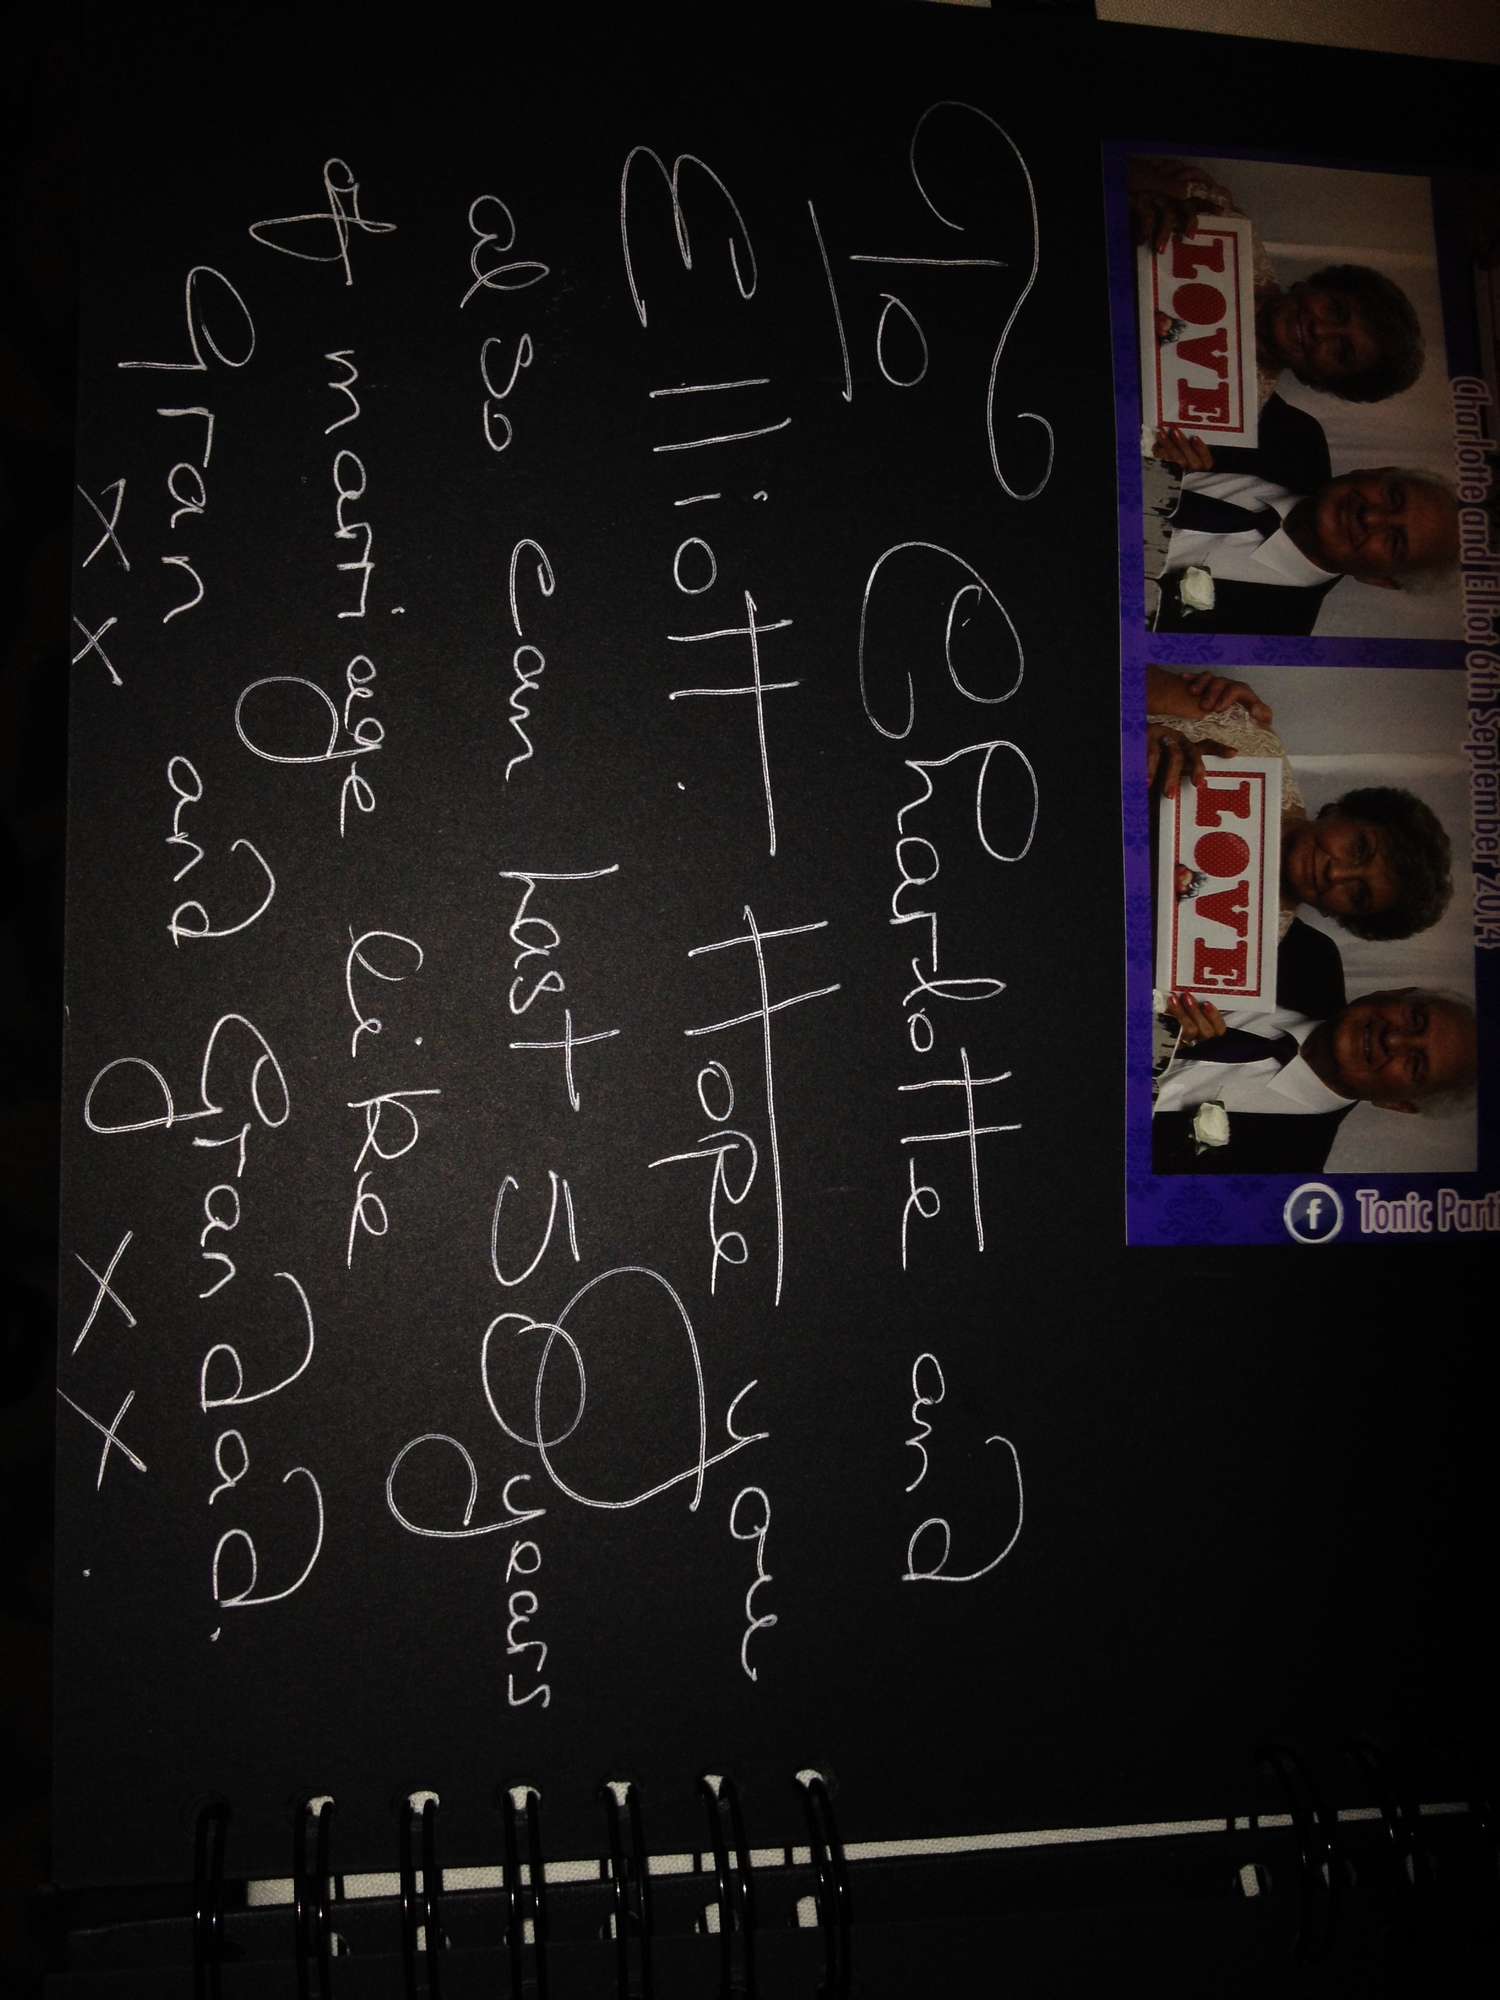 Charlotte and Elliot 6th September 2014
LOVE
LOVE
Tonic Parti
To Charlotte and
Elliott. Hope you
also can last 50 years
of marriage like
Gran and Grandad.
x x x x .